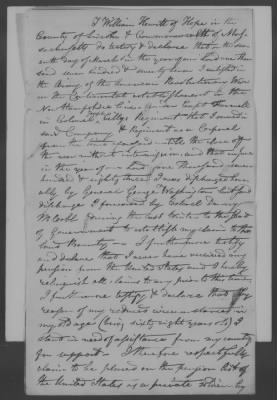 I William Hewitt of Hope in the
County of Lincoln & Commonwealth of Mas-
sachusetts do testify & declare that on the sev
enth day of March in the year one thou-
sand seven hundred & seventy seven I enlisted in
the Army of the Revolutionary War
on the Continental establishment in the
New Hampshire Line in Capt
in Colonel Regiment that I served in
said Company & Regiment as a Corporal
from the time till the close of
the war without intermission and that
in the year of our Lord one thousand seven
hundred & eighty three I was discharged
by General George Washington but
discharge I forwarded by Colonel
McCobb during the last Winter to the Seat
of Government to establish my claim to the
land Bounty — I further testify
and declare that I have never received any
pension from the United States and I hereby
relinquish all claims to any prior to this time
I further testify & declare that by
reason of my reduced circumstances in
my old age (being sixty eight years old) I
stand in need of assistance from my country
for support — I therefore respectfully
claim to be placed on the pension list of
the United States as a private soldier by